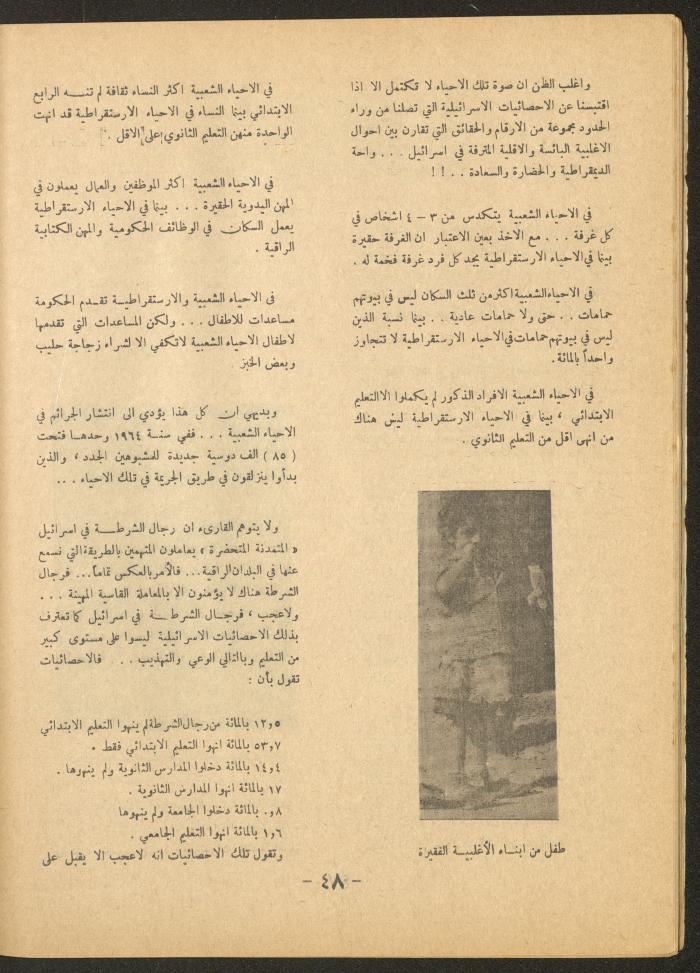 واغلب الظن ان صورة تلك الاحياء لا تكتمل الا اذا
اقتبسنا عن الاحصائيات الاسرائيلية التي تصلنا من وراء
الحدود مجموعة من الارقام والحقائق التي تقارن بين احوال
الاغلبية البائسة والاقلية المترفة في اسرائيل . . . واحة
الديمقراطية والحضارة والسعادة . . ! !
في الاحياء الشعبية يتكدس من ٣ – ٤ اشخاص في
كل غرفة . . . مع الاخذ بعين الاعتبار ان الغرفة حقيرة
بينما في الاحياء الارستقراطية يجد كل فرد غرفة فخمة له .
في الاحياء الشعبية اكثر من ثلث السكان ليس في بيوتهم
حمامات . . حتى ولا حمامات عادية . . بينما نسبة الذين
ليس في بيوتهم حمامات في الاحياء الارستقراطية لا تتجاوز
واحداً بالمائة .
في الاحياء الشعبية الافراد الذكور لم يكملوا الا التعليم
الابتدائي ، بينما في الاحياء الارستقراطية ليس هناك
من انهى اقل من التعليم الثانوي .
طفل من ابناء الأغلبية الفقيرة
في الاحياء الشعبية اكثر النساء ثقافة لم تنه الرابع
الابتدائي بينما النساء في الاحياء الارستقراطية قد انهت
الواحدة منهن التعليم الثانوي على الاقل .
في الاحياء الشعبية اكثر الموظفين والعمال يعملون في
المهن اليدوية الحقيرة . . . بينما في الاحياء الارستقراطية
يعمل السكان في الوظائف الحكومية والمهن الكتابية
الراقية .
في الاحياء الشعبية والارستقراطية تقدم الحكومة
مساعدات للاطفال . . . ولكن المساعدات التي تقدمها
لاطفال الاحياء الشعبية لاتكفي الا لشراء زجاجة حليب
وبعض الخبز
وبديهي ان كل هذا يؤدي الى انتشار الجرائم في
الاحياء الشعبية . . . ففي سنة ١٩٦٤ وحدها فتحت
( ٨٥ ) الف دوسية جديدة للمشبوهين الجدد ، والذين
بدأوا ينزلقون في طريق الجريمة في تلك الاحياء . . .
ولا يتوهم القارىء ان رجال الشرطة في اسرائيل
« المتمدنة المتحضرة » يعاملون المتهمين بالطريقة التي نسمع
عنها في البلدان الراقية ... فالأمر بالعكس تماماً ... فرجال
الشرطة هناك لا يؤمنون الا بالمعاملة القاسية المهينة . . .
ولاعجب ، فرجال الشرطة في اسرائيل كما تعترف
بذلك الاحصائيات الاسرائيلية ليسوا على مستوى كبير
من التعليم وبالتالي الوعي والتهذيب . . . فالاحصائيات
تقول بأن :
١٢,٥ بالمائة من رجال الشرطة لم ينهوا التعليم الابتدائي
٥٣,٧ بالمائة انهوا التعليم الابتدائي فقط .
١٤,٤ بالمائة دخلوا المدارس الثانوية ولم ينهوها .
١٧ بالمائة انهوا المدارس الثانوية .
٠,٨ بالمائة دخلوا الجامعة ولم ينهوها
١,٦ بالمائة انهوا التعليم الجامعي .
وتقول تلك الاحصائيات انه لاعجب الا يقبل على
– ٤٨ –